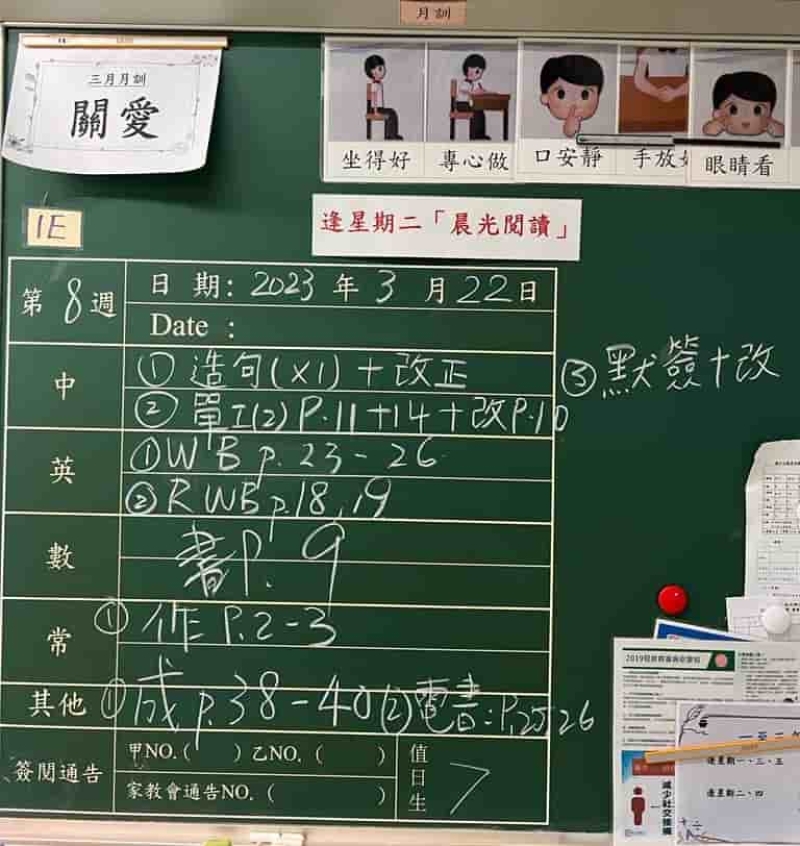 月訓
三月月訓
關愛
坐得好
專心做
口安靜
手放好
眼睛看
1E
逢星期二「晨光閱讀」
第8週
日期：2023年3月22日
Date :
中
① 造句(×1)+改正
② 單工(2) P.11+14+改P.10
③ 默簽+改
英
① WB p.23-26
② RWB p.18,19
數
書P.9
常
① 作P.2-3
其他
① 成p.38-40 (2)電書:P.25 26
簽閱通告
甲NO.(  )乙NO.(  )
家教會通告NO.(  )
值日生
7
減少社交接觸
逢星期一、三、五
逢星期二、四